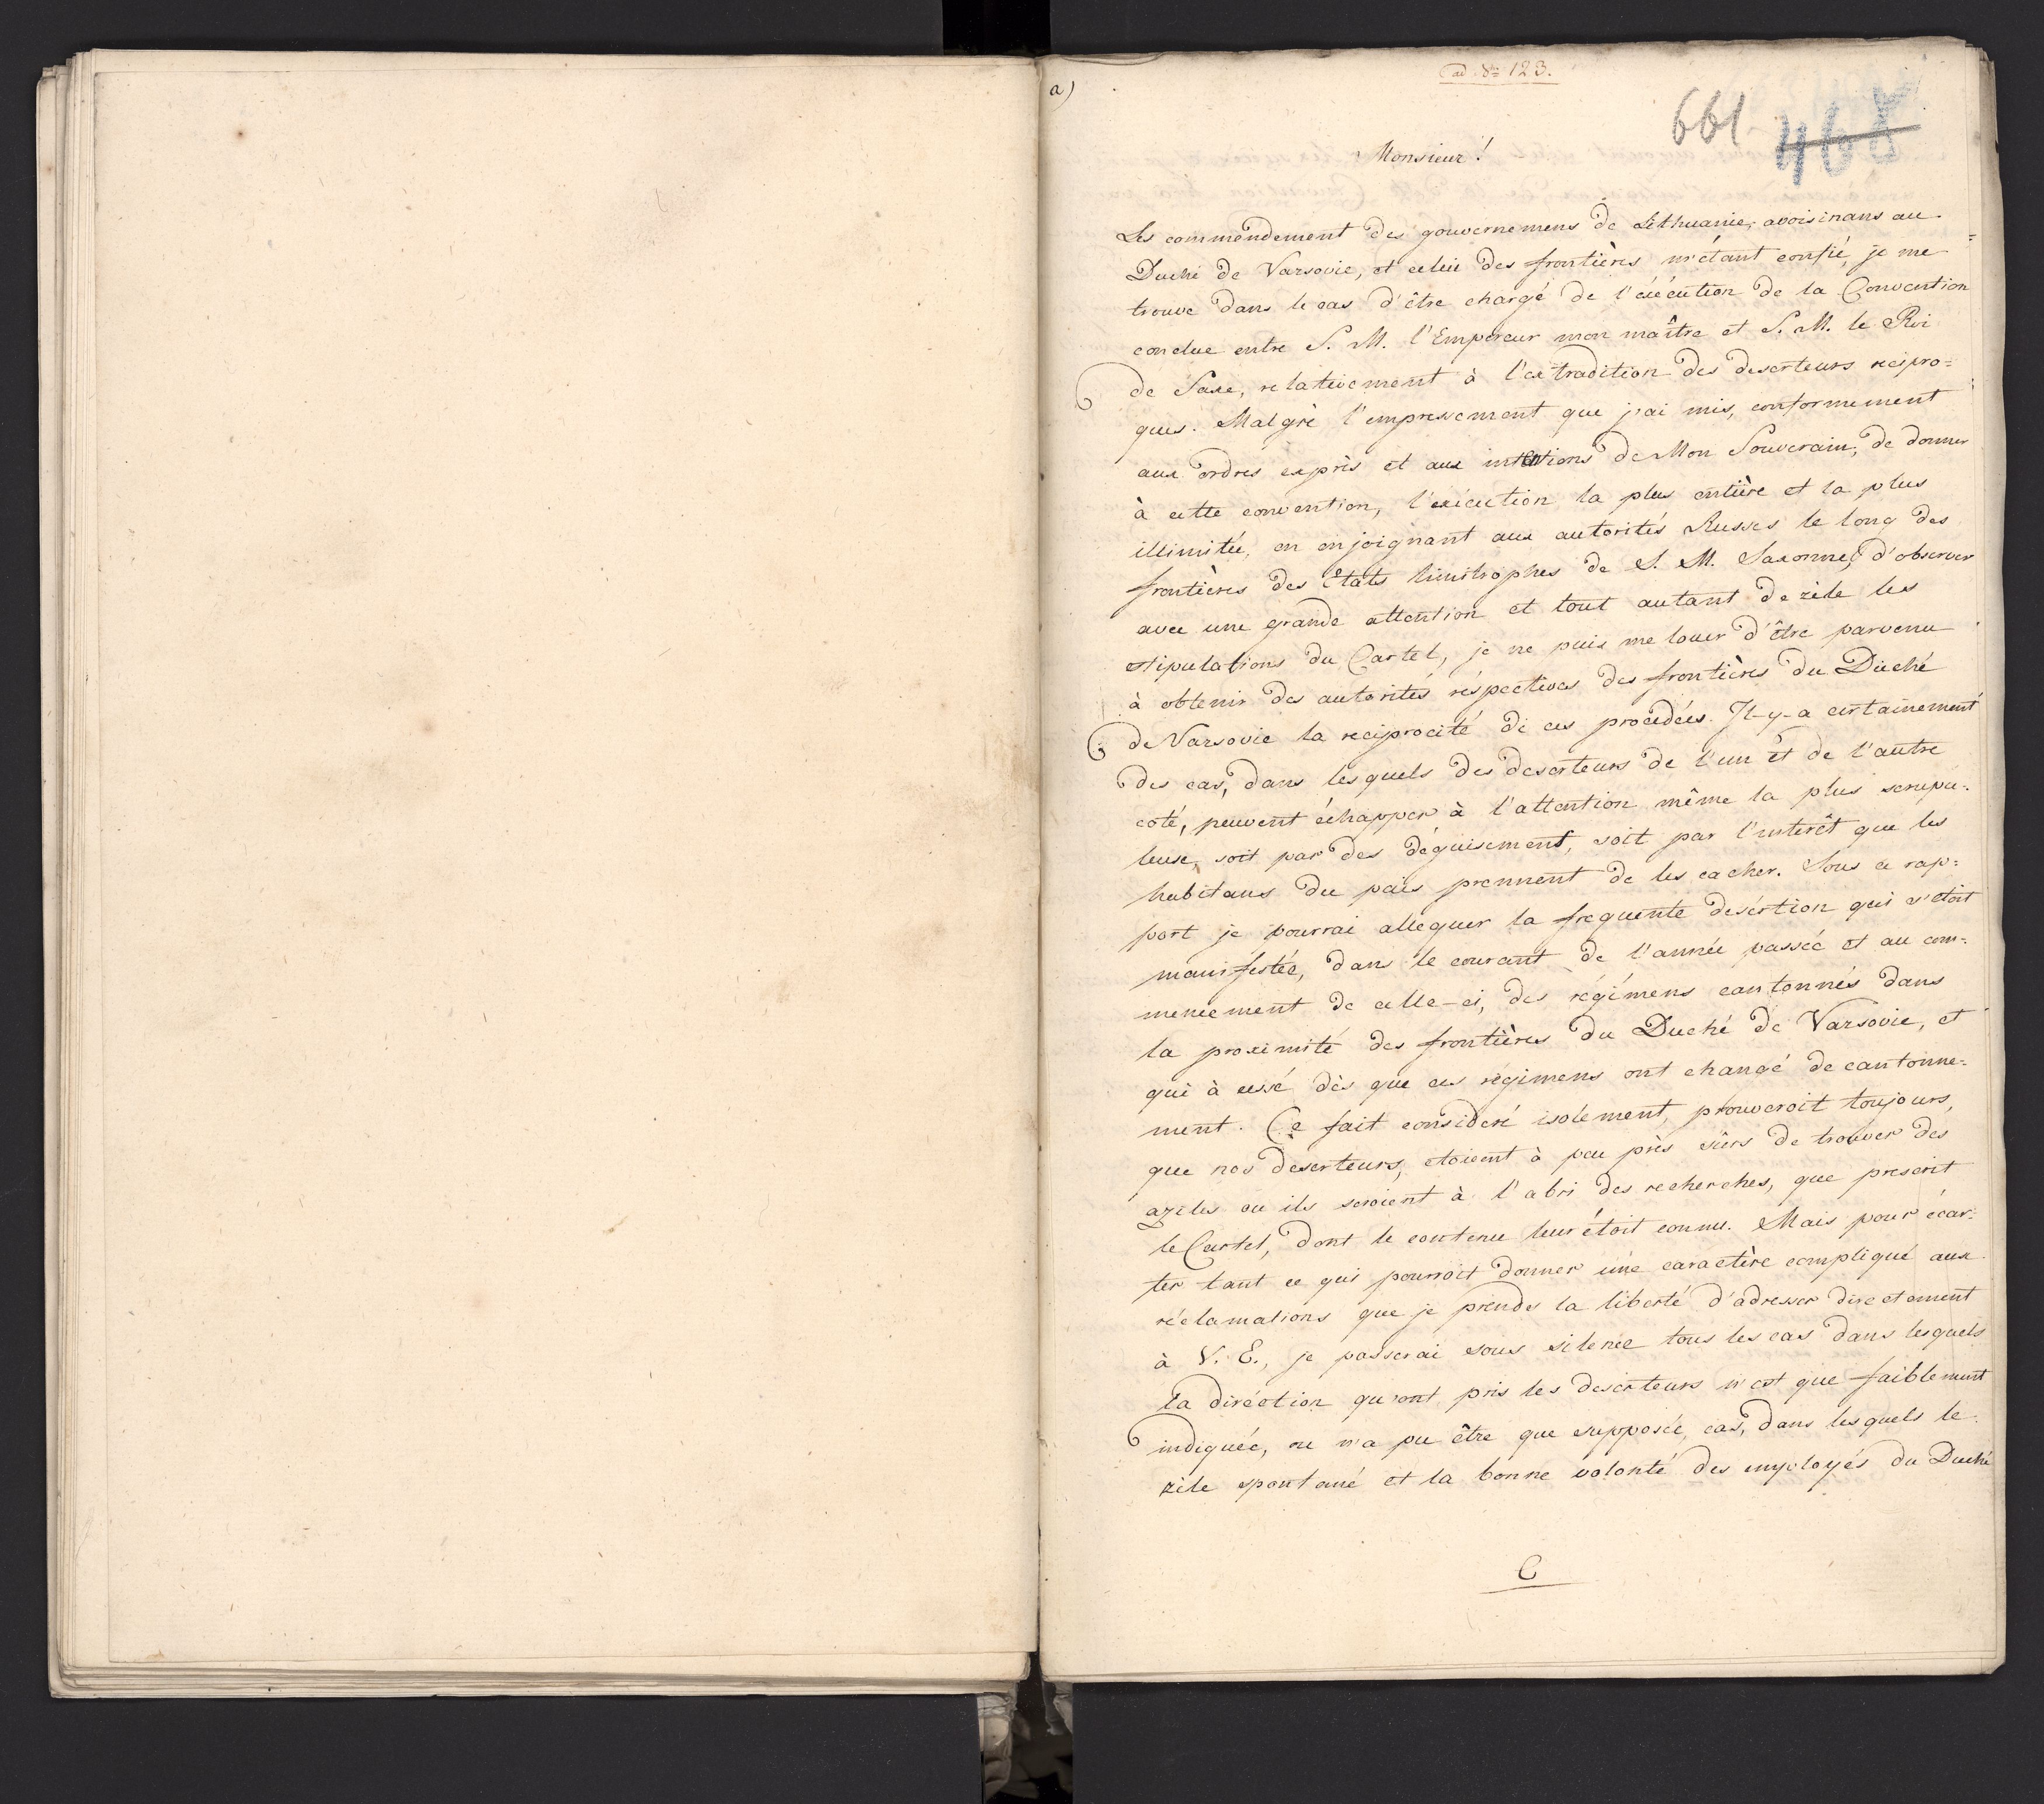 a)
ad Nro 123.
661
468
Monsieur!
Les commendement des gouvernemens de Lithuanie, avoisinans au
Duché de Varsovie, et celui des frontières m'étant confié, je me
trouve dans le cas d'être chargé de l'éxécution de la Convention
conclue entre S. M. l'Empereur mon maître et S. M. le Roi
de Saxe, relativement à l'extradition des deserteurs recipro=
ques. Malgrè l'empressement que j'ai mis, conformement
aux ordres exprès et aux intentions de Mon Souverain, de donner
à cette convention, l'exécution la plus entière et la plus
illimitée, en enjoignant aux autorités Russes le long des
frontières des Etats limitrophes de S. M. Saxonne, d'observer
avec une grande attention et tout autant de zèle les
stipulations du Cartel, je ne puis me louer d'être parvenu
à obtenir des autorités réspectives des frontières du Duché
de Varsovie la reciprocité de ces procédées. Il-y-a certainement
des cas, dans lesquels des deserteurs de l'un et de l'autre
coté, peuvent échapper à l'attention même la plus scrupu=
leuse, soit par des déguisement, soit par l'interêt que les
habitans du païs prennent de les cacher. Sous ce rap=
port je pourrai alleguer la frequente desértion qui s'étoit
manifestée, dans le courant de l'année passée et au com=
mencement de celle-ci, des régimens cantonnés dans
la proximité des frontières du Duché de Varsovie, et
qui à cessé dès que ces régimens ont changé de cantonne=
ment. Ce fait consideré isolement, prouveroit toujours,
que nos deserteurs, etoient à peu près sûrs de trouver des
aziles ou ils seroient à l'abri des recherches, que prescrit
le Cartel, dont le contenu leur étoit connu. Mais pour écar=
ter tant ce qui pourroit donner une caractère compliqué aux
réclamations que je prends la liberté d'adresser directement
à V. E., je passerai sous silence tous les cas dans lesquels
la diréction qu'ont pris les deserteurs n'est que faiblement
indiquée, ou n'a pu être que supposée, cas, dans lesquels le
zèle spontané et la bonne volonté des employés du Duché
C